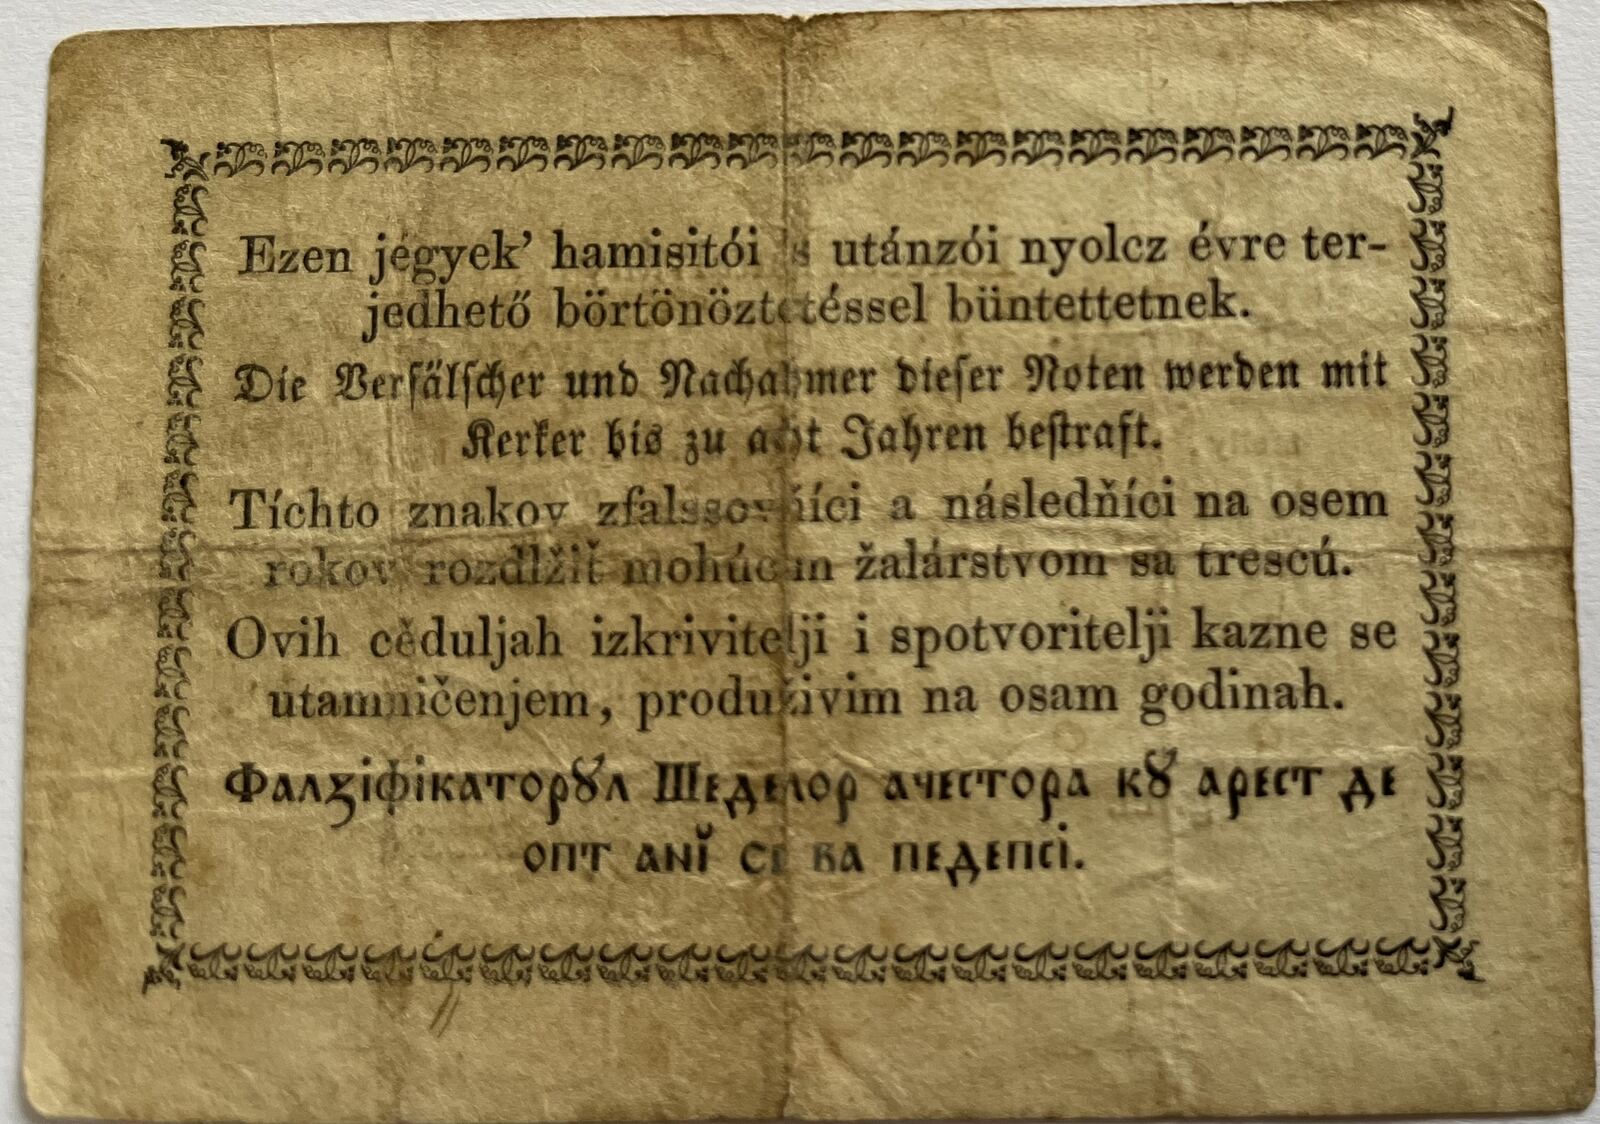 Ezen jegyek' hamisitói s utánzói nyolcz évre ter-
jedhető börtönöztetéssel büntettetnek.
Die Verfälscher und Nachahmer dieser Noten werden mit
Kerker bis zu acht Jahren bestraft.
Tíchto znakov zfalssovňíci a následňíci na osem
rokov rozdlžiť mohúcim žalárstvom sa trescú.
Ovih cěduljah izkrivitelji i spotvoritelji kazne se
utamničenjem, produživim na osam godinah.
Фалзіфікаторꙋл Шеделор ачестора кꙋ арест де
опт анĭ се ва педепсі.